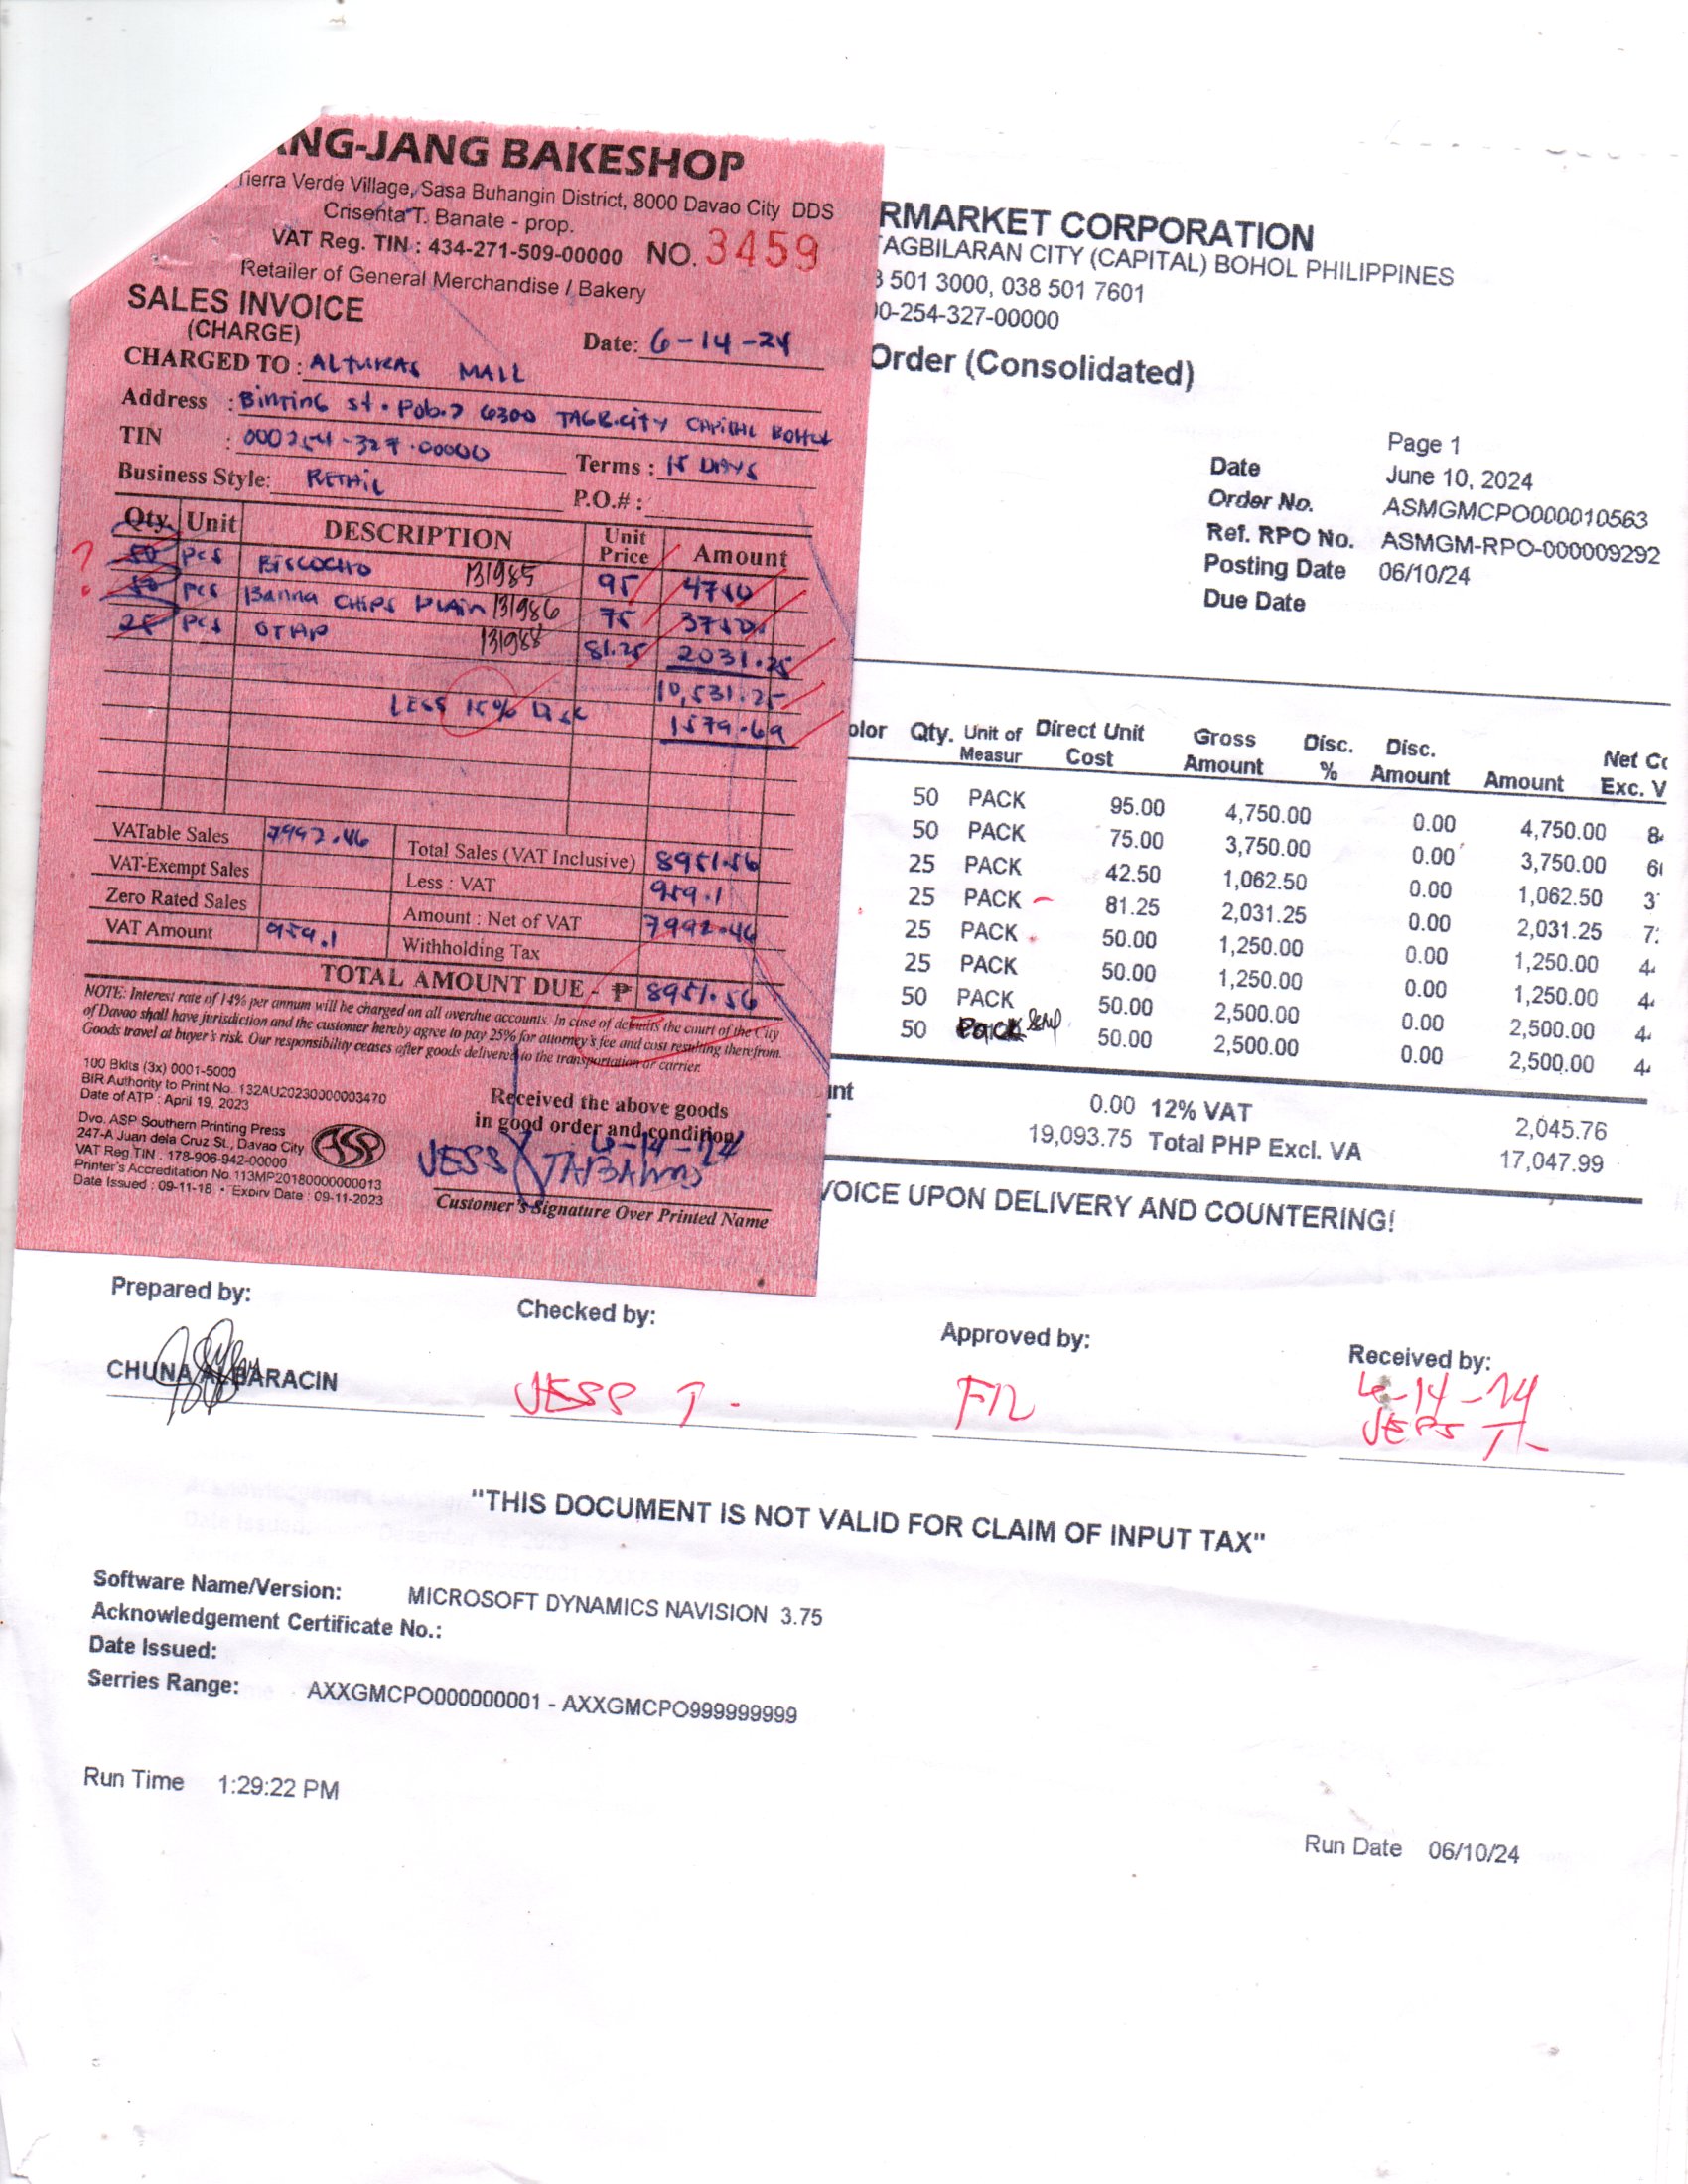 NG-JANG BAKESHOP
Tierra Verde Village, Sasa Buhangin District, 8000 Davao City DDS
Crisenta T. Banate - prop.
VAT Reg. TIN : 434-271-509-00000 NO. 3459
Retailer of General Merchandise / Bakery
SALES INVOICE
(CHARGE)
Date: 6-14-24
CHARGED TO : ALTURAS MALL
Address : St. Pob. 2 6300 TAGB. CITY CAPITAL BOHOL
TIN : 000254-327-00000
Terms : 15 DAYS
Business Style: RETAIL
P.O.# :
Qty. Unit DESCRIPTION Unit Price Amount
50 pcs BISCOCHO 131985 95 4750
50 pcs Banna CHIPS PLAIN 131986 75 3750
25 pcs OTAP 131988 81.25 2031.25
10,531.25
LESS 15% Disc 1579.69
VATable Sales 7992.46 Total Sales (VAT Inclusive) 8951.56
VAT-Exempt Sales Less : VAT 959.1
Zero Rated Sales Amount : Net of VAT 7992.46
VAT Amount 959.1 Withholding Tax
TOTAL AMOUNT DUE - ₱ 8951.56
NOTE: Interest rate of 14% per annum will be charged on all overdue accounts. In case of defaults the court of the City
of Davao shall have jurisdiction and the customer hereby agree to pay 25% for attorney's fee and cost resulting therefrom.
Goods travel at buyer's risk. Our responsibility ceases after goods delivered to the transportation or carrier.
100 Bklts (3x) 0001-5000
BIR Authority to Print No. 132AU20230000003470
Date of ATP : April 19, 2023
Dvo. ASP Southern Printing Press
247-A Juan dela Cruz St., Davao City
VAT Reg TIN : 178-906-942-00000
Printer's Accreditation No. 113MP20180000000013
Date Issued : 09-11-18 • Expiry Date : 09-11-2023
ASP
Received the above goods
in good order and condition
6-14-24
JESS
Customer's Signature Over Printed Name
RMARKET CORPORATION
TAGBILARAN CITY (CAPITAL) BOHOL PHILIPPINES
8 501 3000, 038 501 7601
00-254-327-00000
Order (Consolidated)
Page 1
Date June 10, 2024
Order No. ASMGMCPO000010563
Ref. RPO No. ASMGM-RPO-000009292
Posting Date 06/10/24
Due Date
olor Qty. Unit of Measur Direct Unit Cost Gross Amount Disc. % Disc. Amount Amount Net Co Exc. V
50 PACK 95.00 4,750.00 0.00 4,750.00 8
50 PACK 75.00 3,750.00 0.00 3,750.00 6
25 PACK 42.50 1,062.50 0.00 1,062.50 3
25 PACK 81.25 2,031.25 0.00 2,031.25 7
25 PACK 50.00 1,250.00 0.00 1,250.00 4
25 PACK 50.00 1,250.00 0.00 1,250.00 4
50 PACK 50.00 2,500.00 0.00 2,500.00 4
50 Pack 50.00 2,500.00 0.00 2,500.00 4
nt 0.00 12% VAT 2,045.76
19,093.75 Total PHP Excl. VA 17,047.99
VOICE UPON DELIVERY AND COUNTERING!
Prepared by: Checked by: Approved by: Received by:
CHUNA ALBARACIN JESS T. 6-14-24
JESS T.
"THIS DOCUMENT IS NOT VALID FOR CLAIM OF INPUT TAX"
Software Name/Version: MICROSOFT DYNAMICS NAVISION 3.75
Acknowledgement Certificate No.:
Date Issued:
Serries Range: AXXGMCPO000000001 - AXXGMCPO999999999
Run Time 1:29:22 PM
Run Date 06/10/24